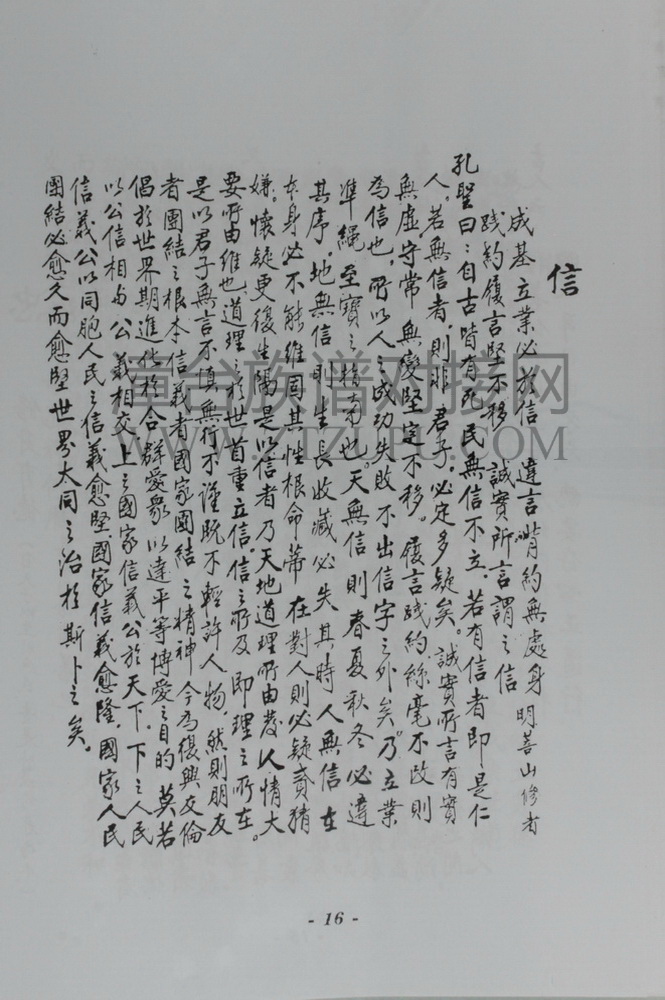 信
成基立業必於信　違言背約無處身　明善山修者
踐約履言堅不移　誠實所言謂之信
孔聖曰：自古皆有死民無信不立。若有信者即是仁
人。若無信者，則非君子，必定多疑矣。誠實所言有實
無虛守常無變堅定不移。履言踐約絲毫不改則
為信也，所以人之成功失敗不出信字之外矣。乃立業
準繩至寶之指南也。天無信則春夏秋冬必違
其序，地無信則生長收藏必失其時人無信在
本身必不能維固其性根命蒂在對人則必疑貳猜
嫌。懷疑更復生隔是以信者乃天地道理所由發人情大
要所由維也道理之於世首重立信。信之所及即理之所在。
是以君子無言不慎無行不謹既不輕許人物，然則朋友
者團結之根本信義者國家團結之精神今為復興友倫
倡於世界期進化於合群愛眾以達平等博愛之目的莫若
以公信相与公義相交上之國家信義公於天下，下之人民
信義公以同胞人民之信義愈堅，國家信義愈隆，國家人民
團結必愈久而愈堅世界大同之治於斯卜之矣。
- 16 -
章台族谱对接网
WWW.ZTZUPU.COM